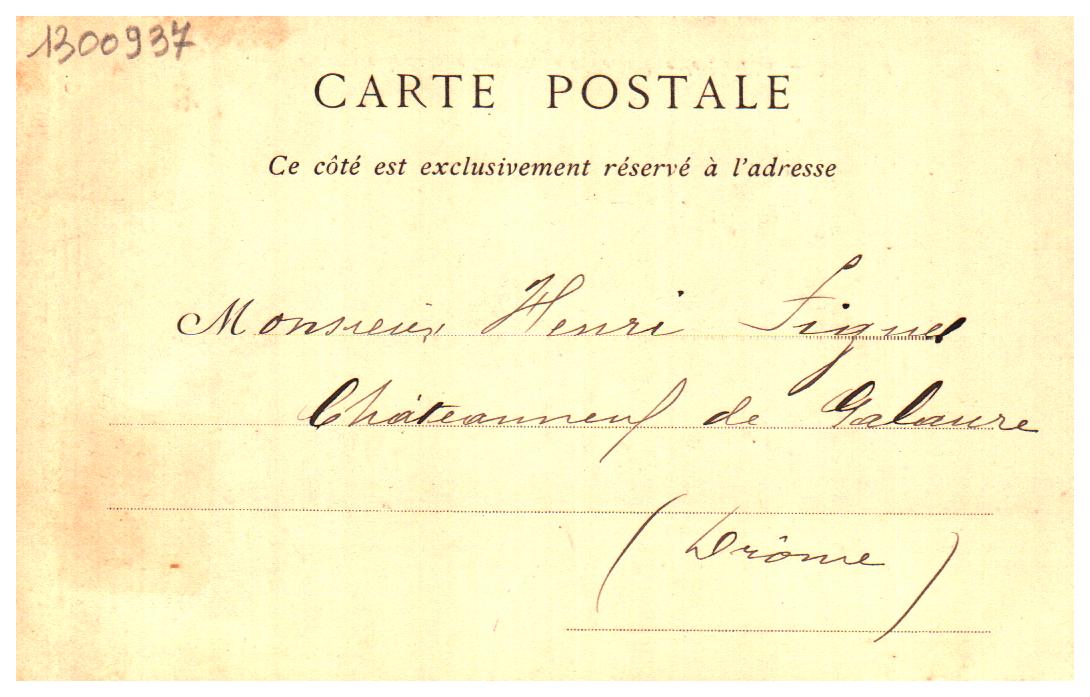 1300937
CARTE POSTALE
Ce côté est exclusivement réservé à l'adresse
Monsieur Henri
Châteauneuf de Galaure
(Drôme)